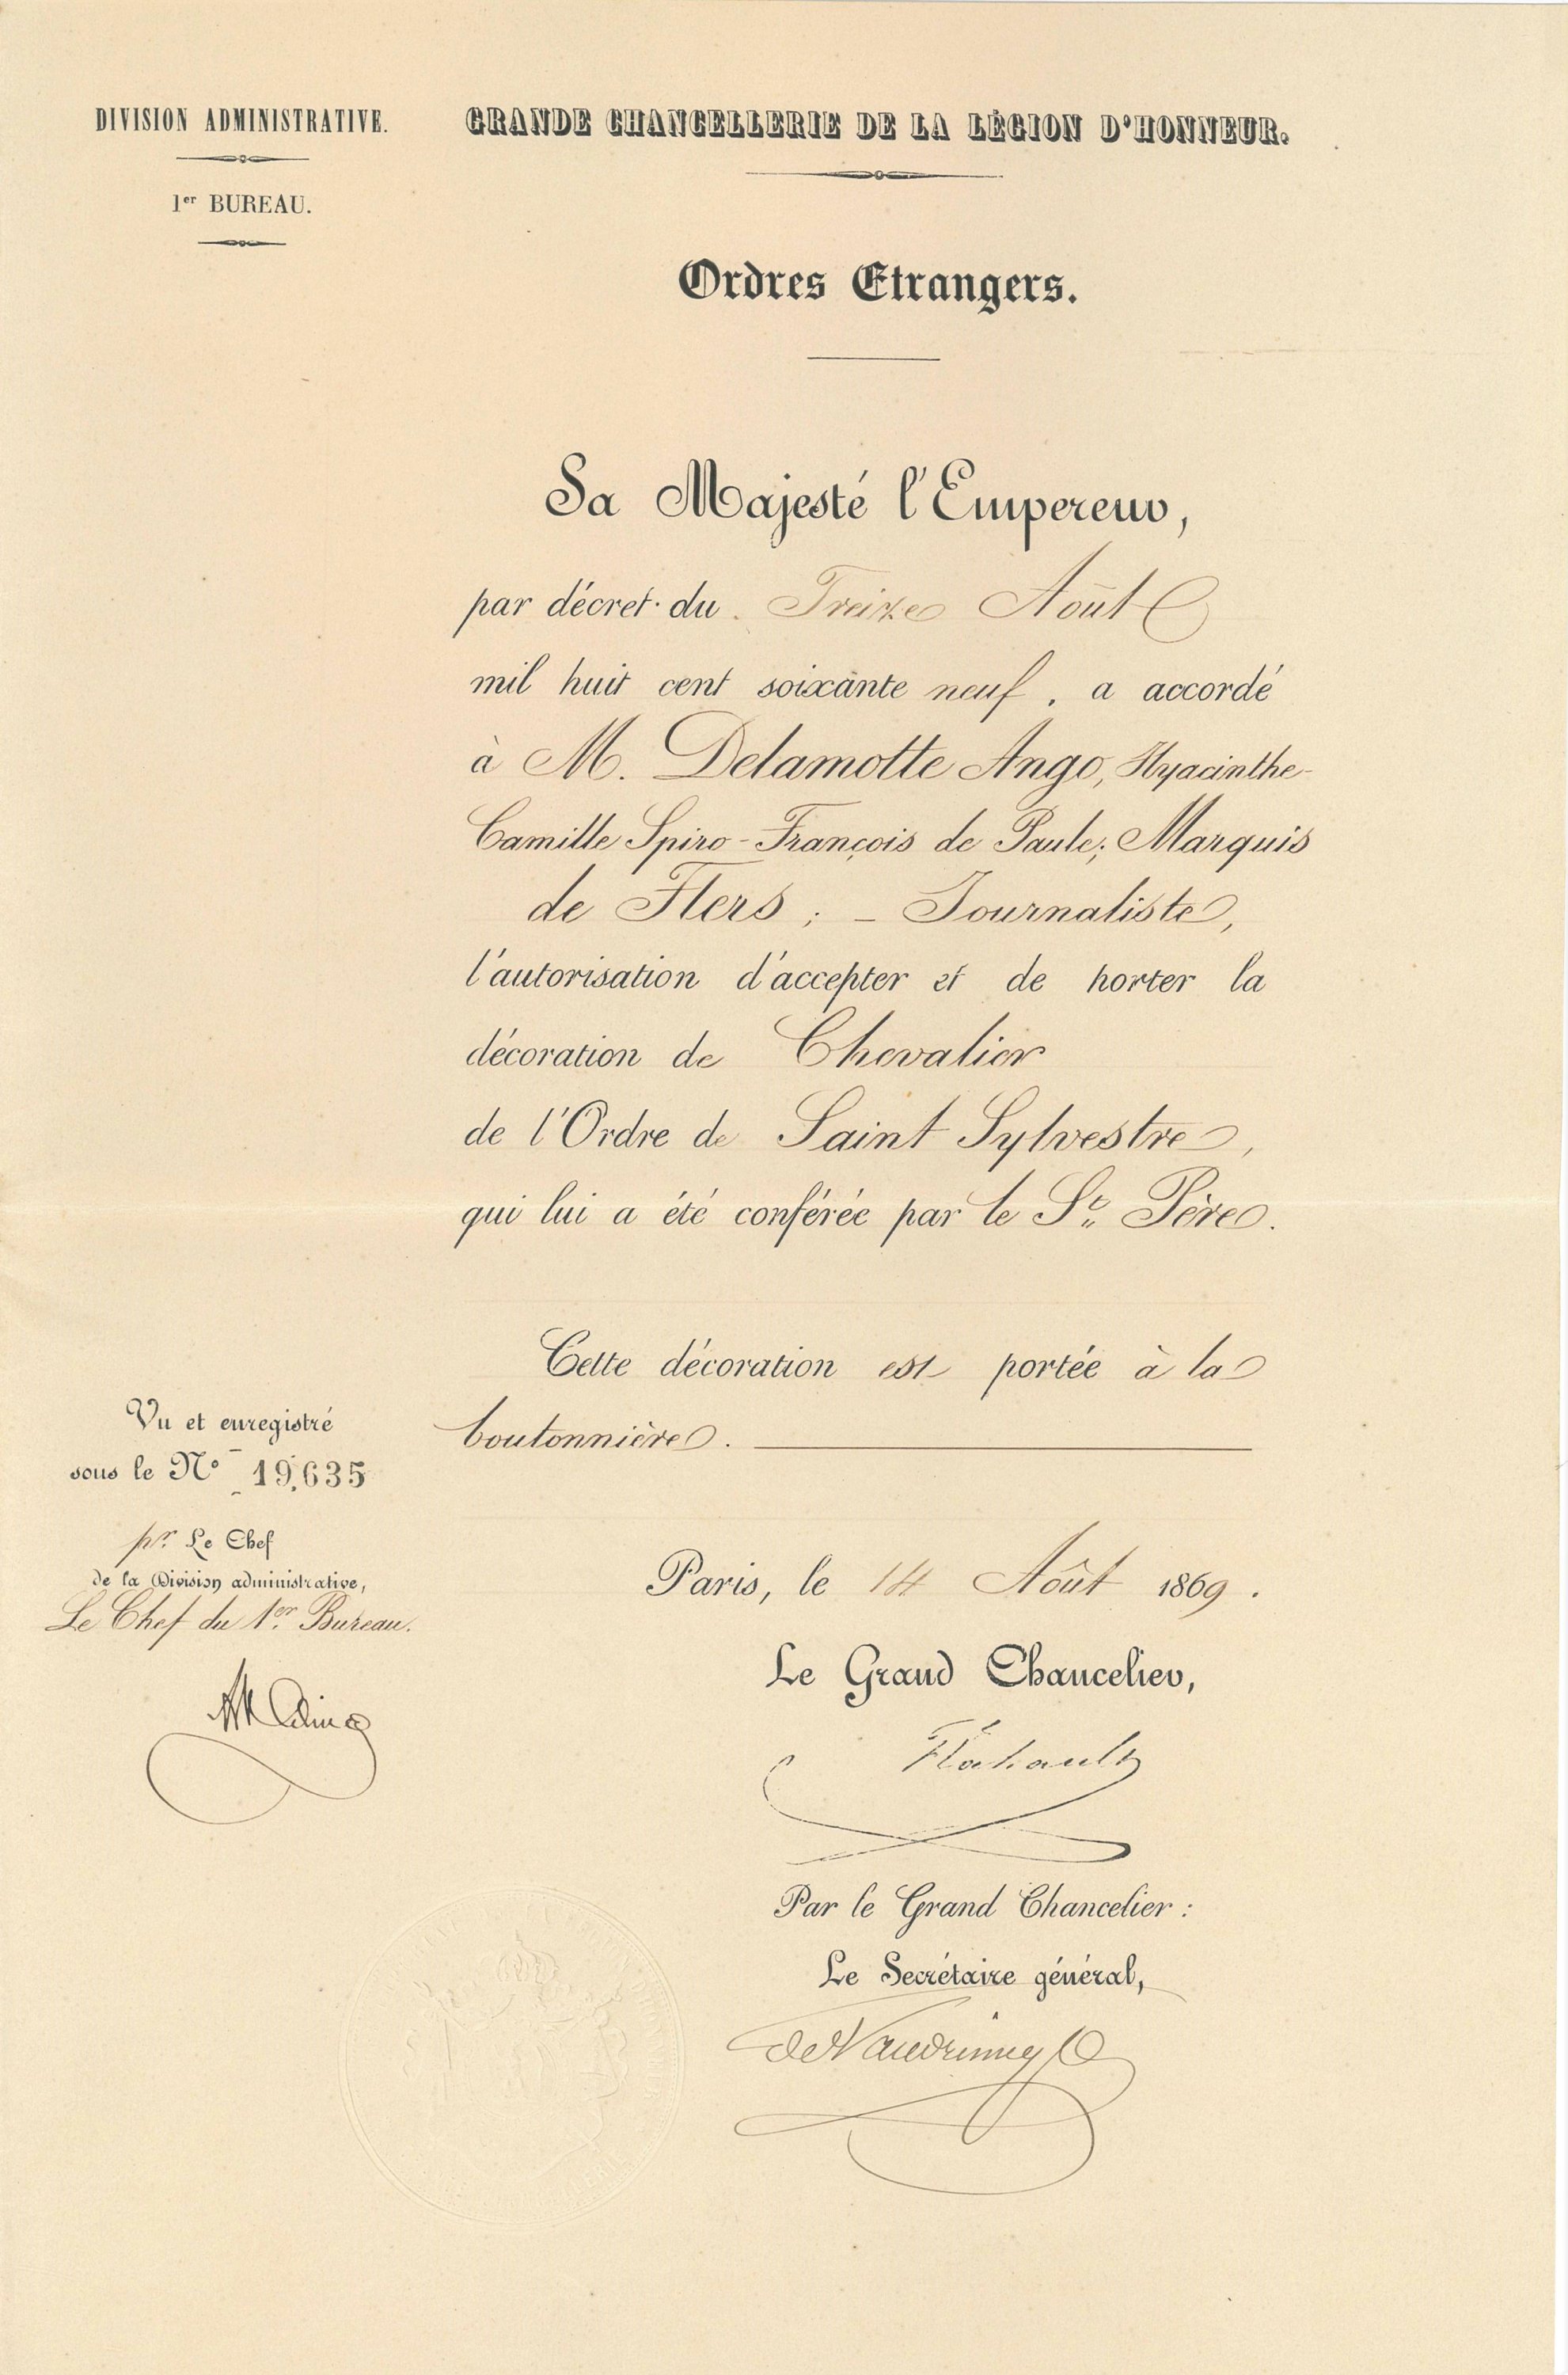 DIVISION ADMINISTRATIVE.
1er BUREAU.
GRANDE CHANCELLERIE DE LA LÉGION D'HONNEUR.
Ordres Etrangers.
Sa Majesté l'Empereur,
par décret du Treize Août
mil huit cent soixante neuf, a accordé
à M. Delamotte Ango, Hyacinthe-
Camille Spiro-François de Paule; Marquis
de Flers; - Journaliste,
l'autorisation d'accepter et de porter la
décoration de Chevalier
de l'Ordre de Saint Sylvestre,
qui lui a été conférée par le St Père.
Cette décoration est portée à la
boutonnière.
Vu et enregistré
sous le No 19,635
pr. Le Chef
de la Division administrative,
Le Chef du 1er Bureau.
Paris, le 14 Août 1869.
Le Grand Chancelier,
Flahault
Par le Grand Chancelier :
Le Secrétaire général,